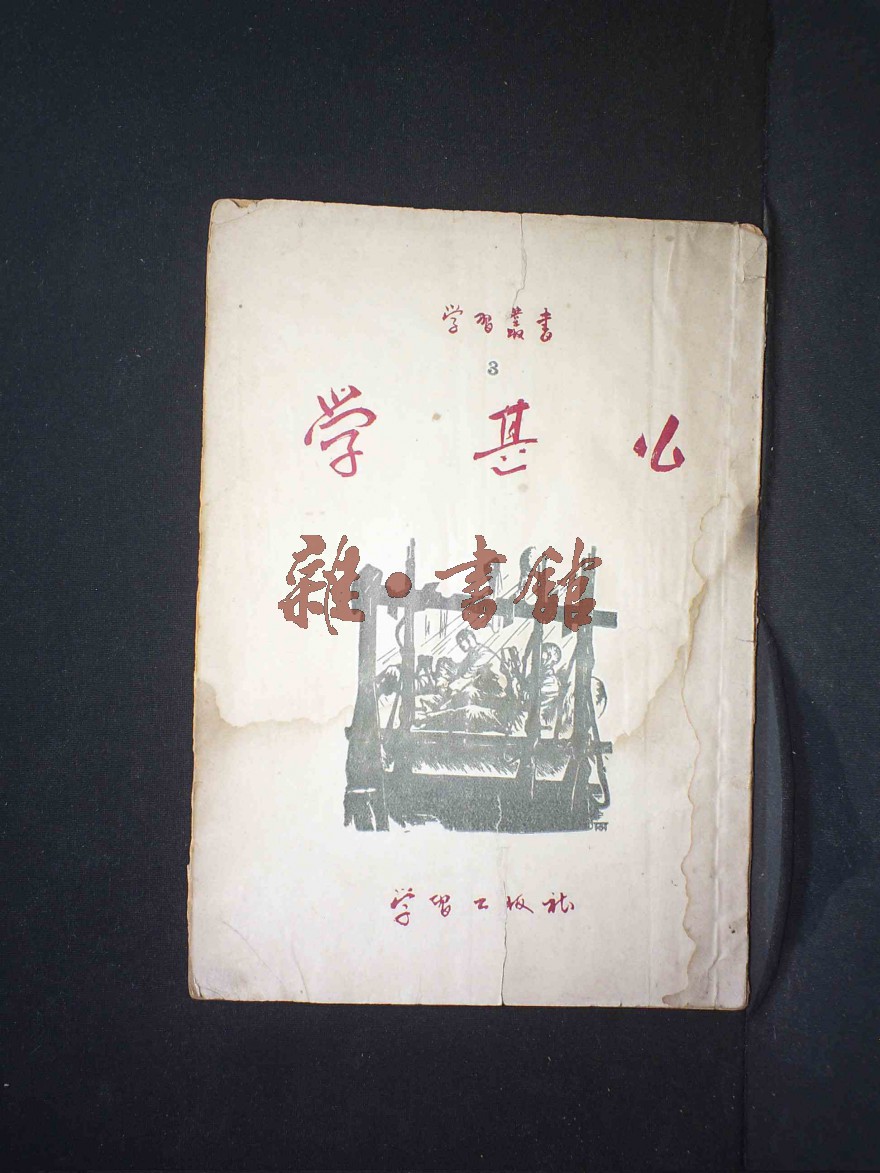 学习叢書
3
学甚么
雜·書館
学習出版社